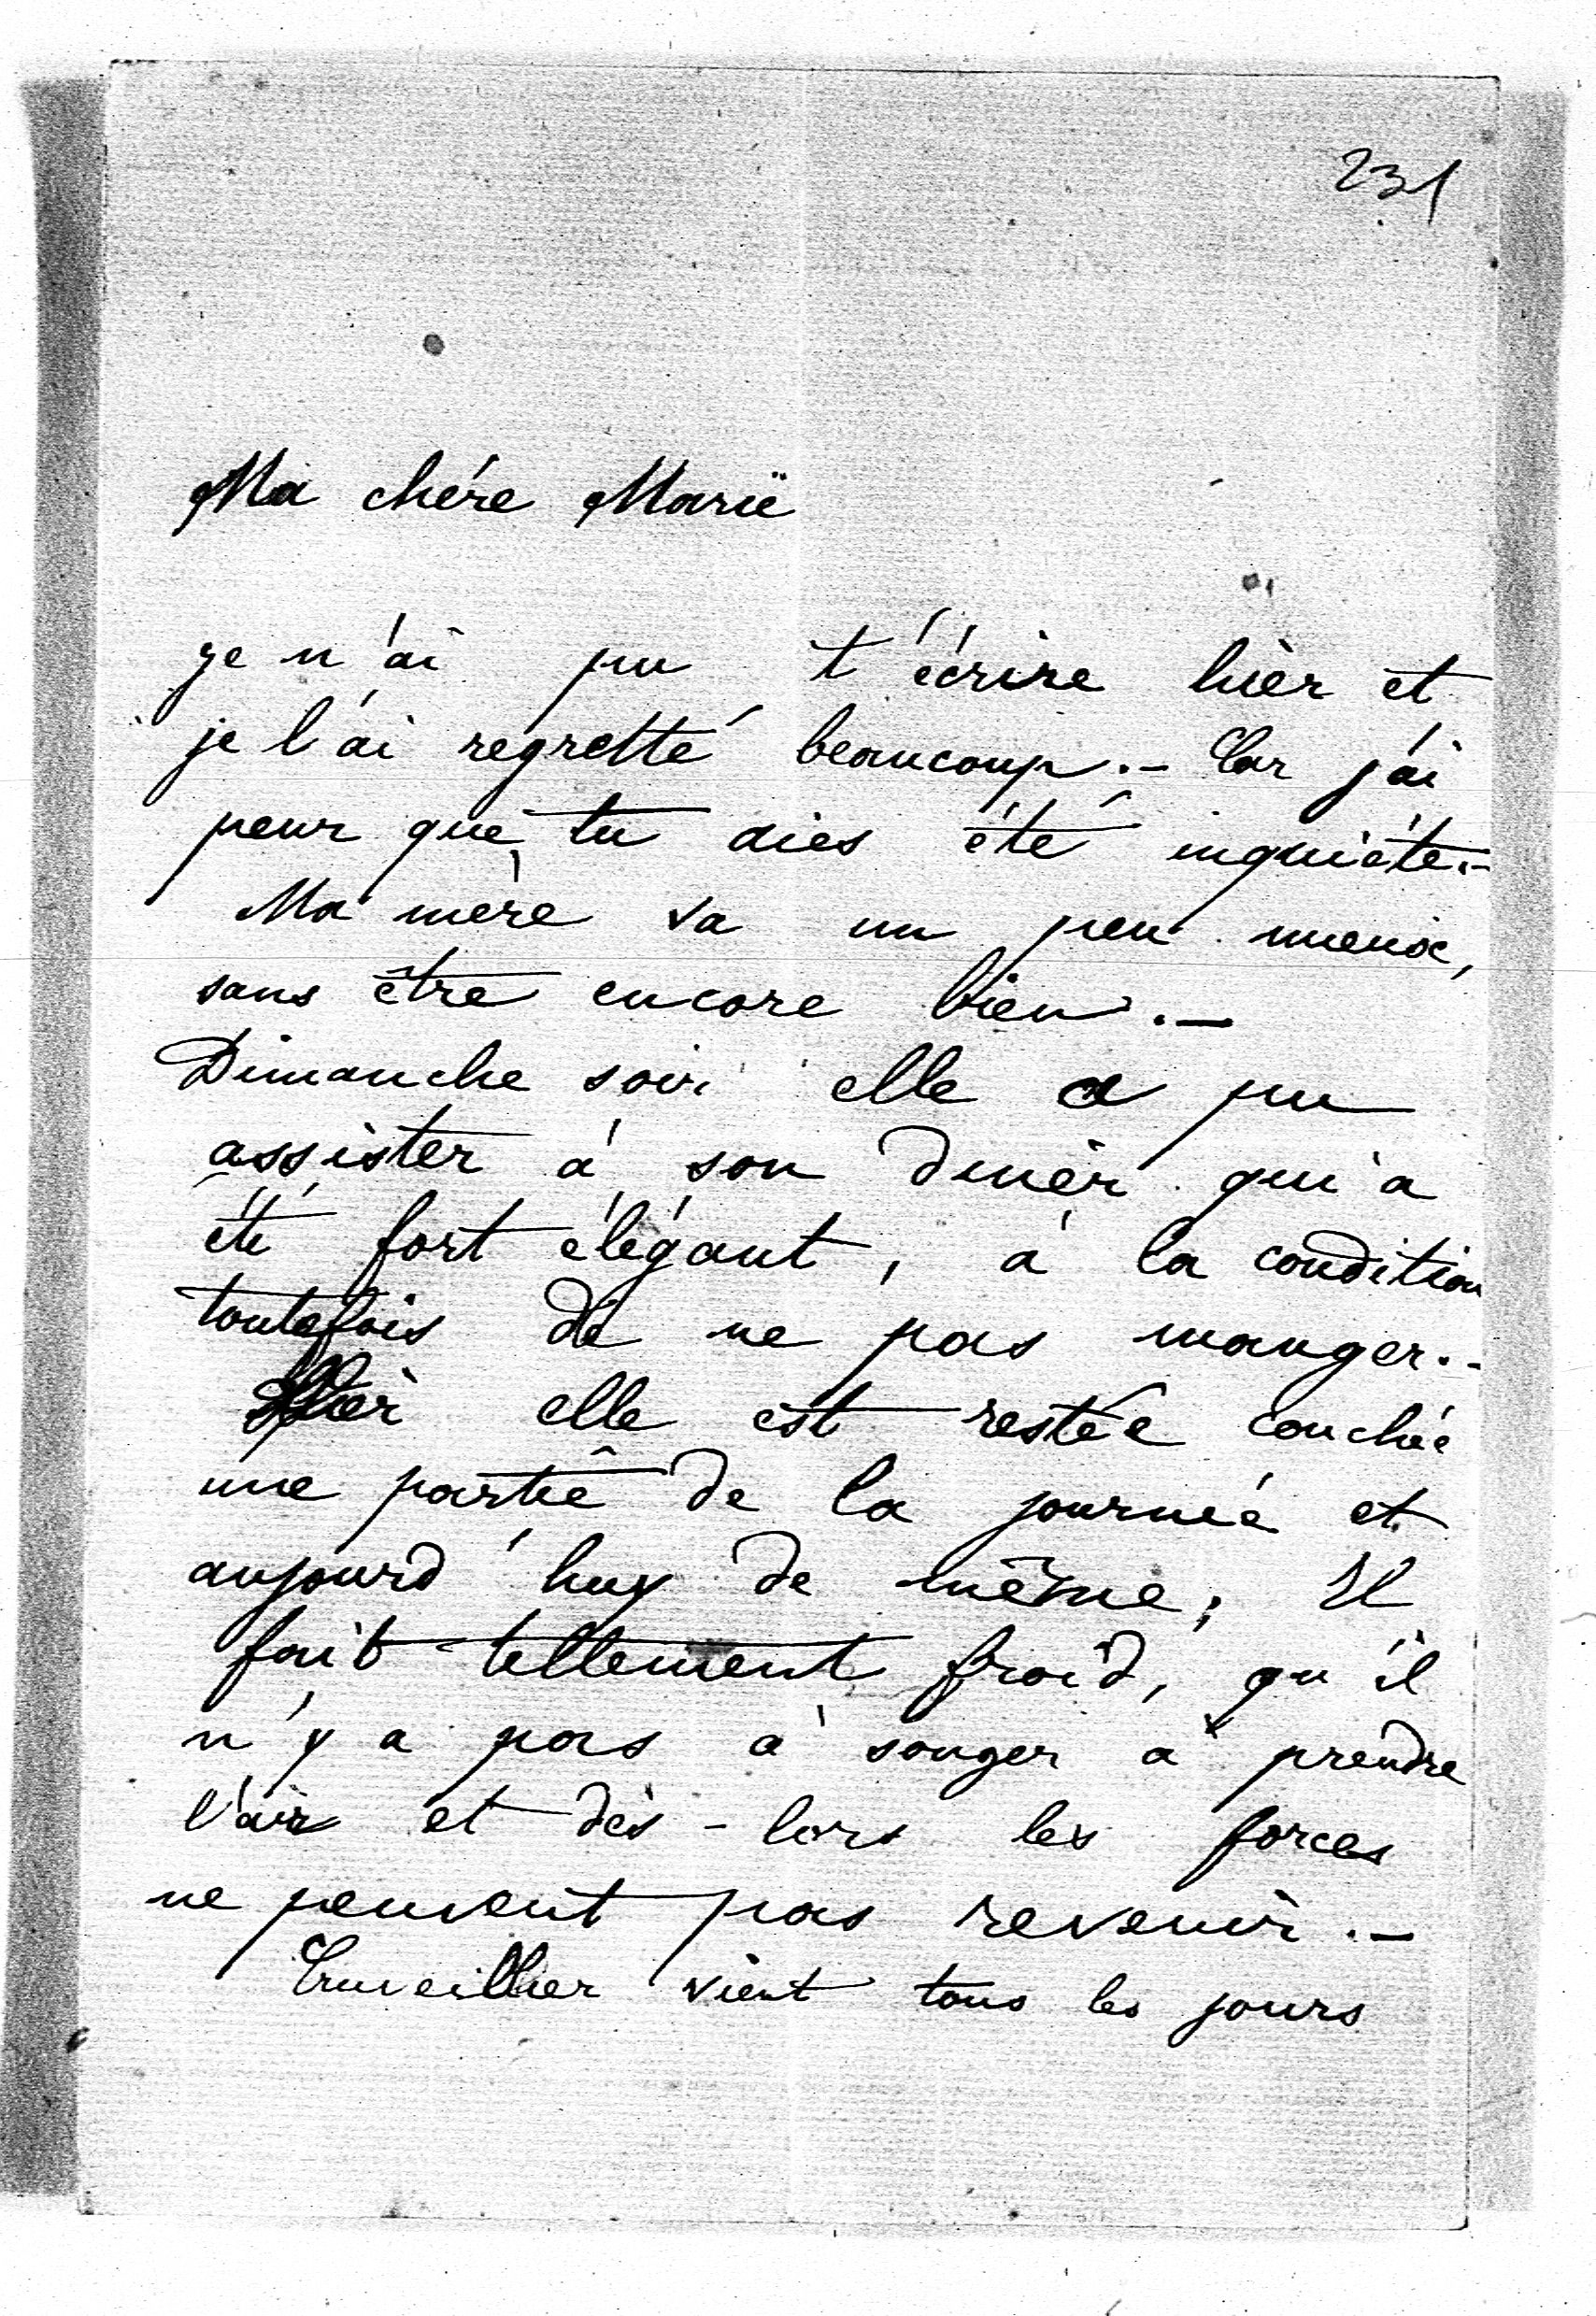 231
Ma chère Marie
je n'ai pu t'écrire hier et
je l'ai regretté beaucoup.- Car j'ai
peur que tu aies été inquiète.-
Ma mère va un peu mieux,
sans être encore bien.-
Dimanche soir elle a pu
assister à son diner qui a
été fort élégant, à la condition
toutefois de ne pas manger.-
Hier elle est restée couchée
une partie de la journée et
aujourd'huy de même; Il
fait tellement froid, qu'il
n'y a pas à songer à prendre
l'air et dès-lors les forces
ne peuvent pas revenir.-
Cruveilher vient tous les jours